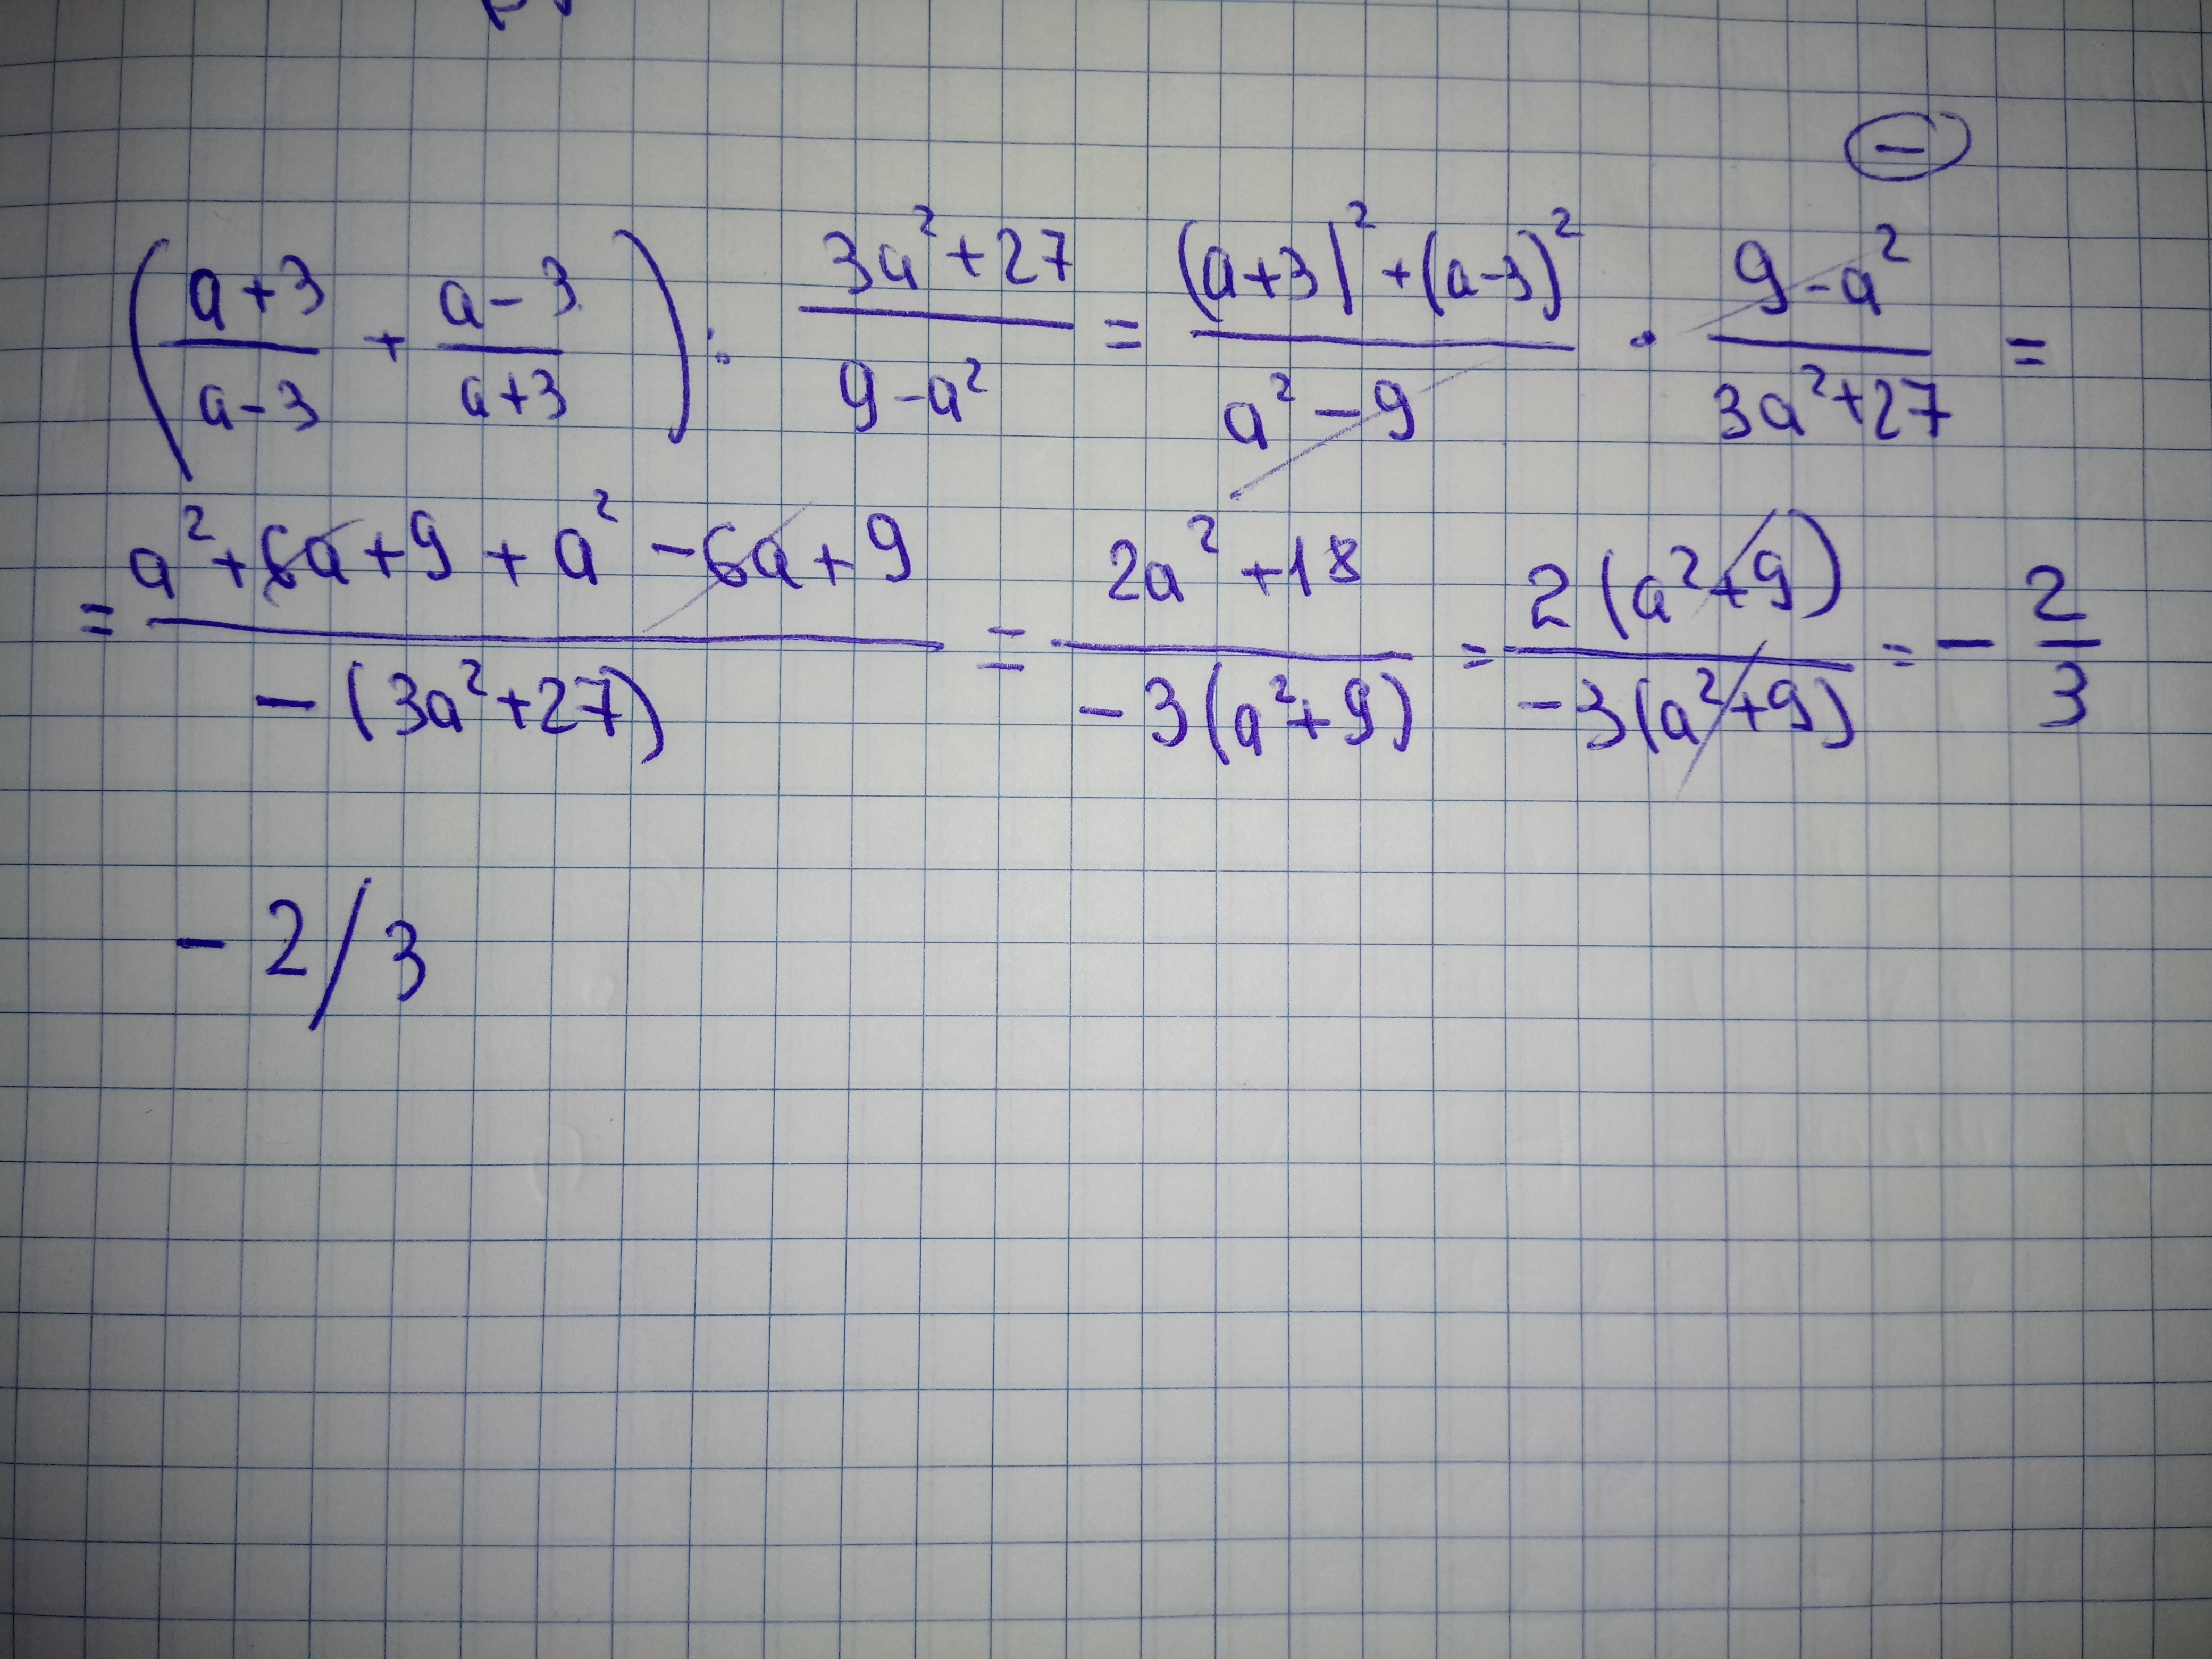 (a+3/a-3 + a-3/a+3) : 3a²+27/9-a² = (a+3)²+(a-3)²/a²-9 · 9-a²/3a²+27 =
= a²+6a+9+a²-6a+9/-(3a²+27) = 2a²+18/-3(a²+9) = 2(a²+9)/-3(a²+9) = -2/3
-2/3